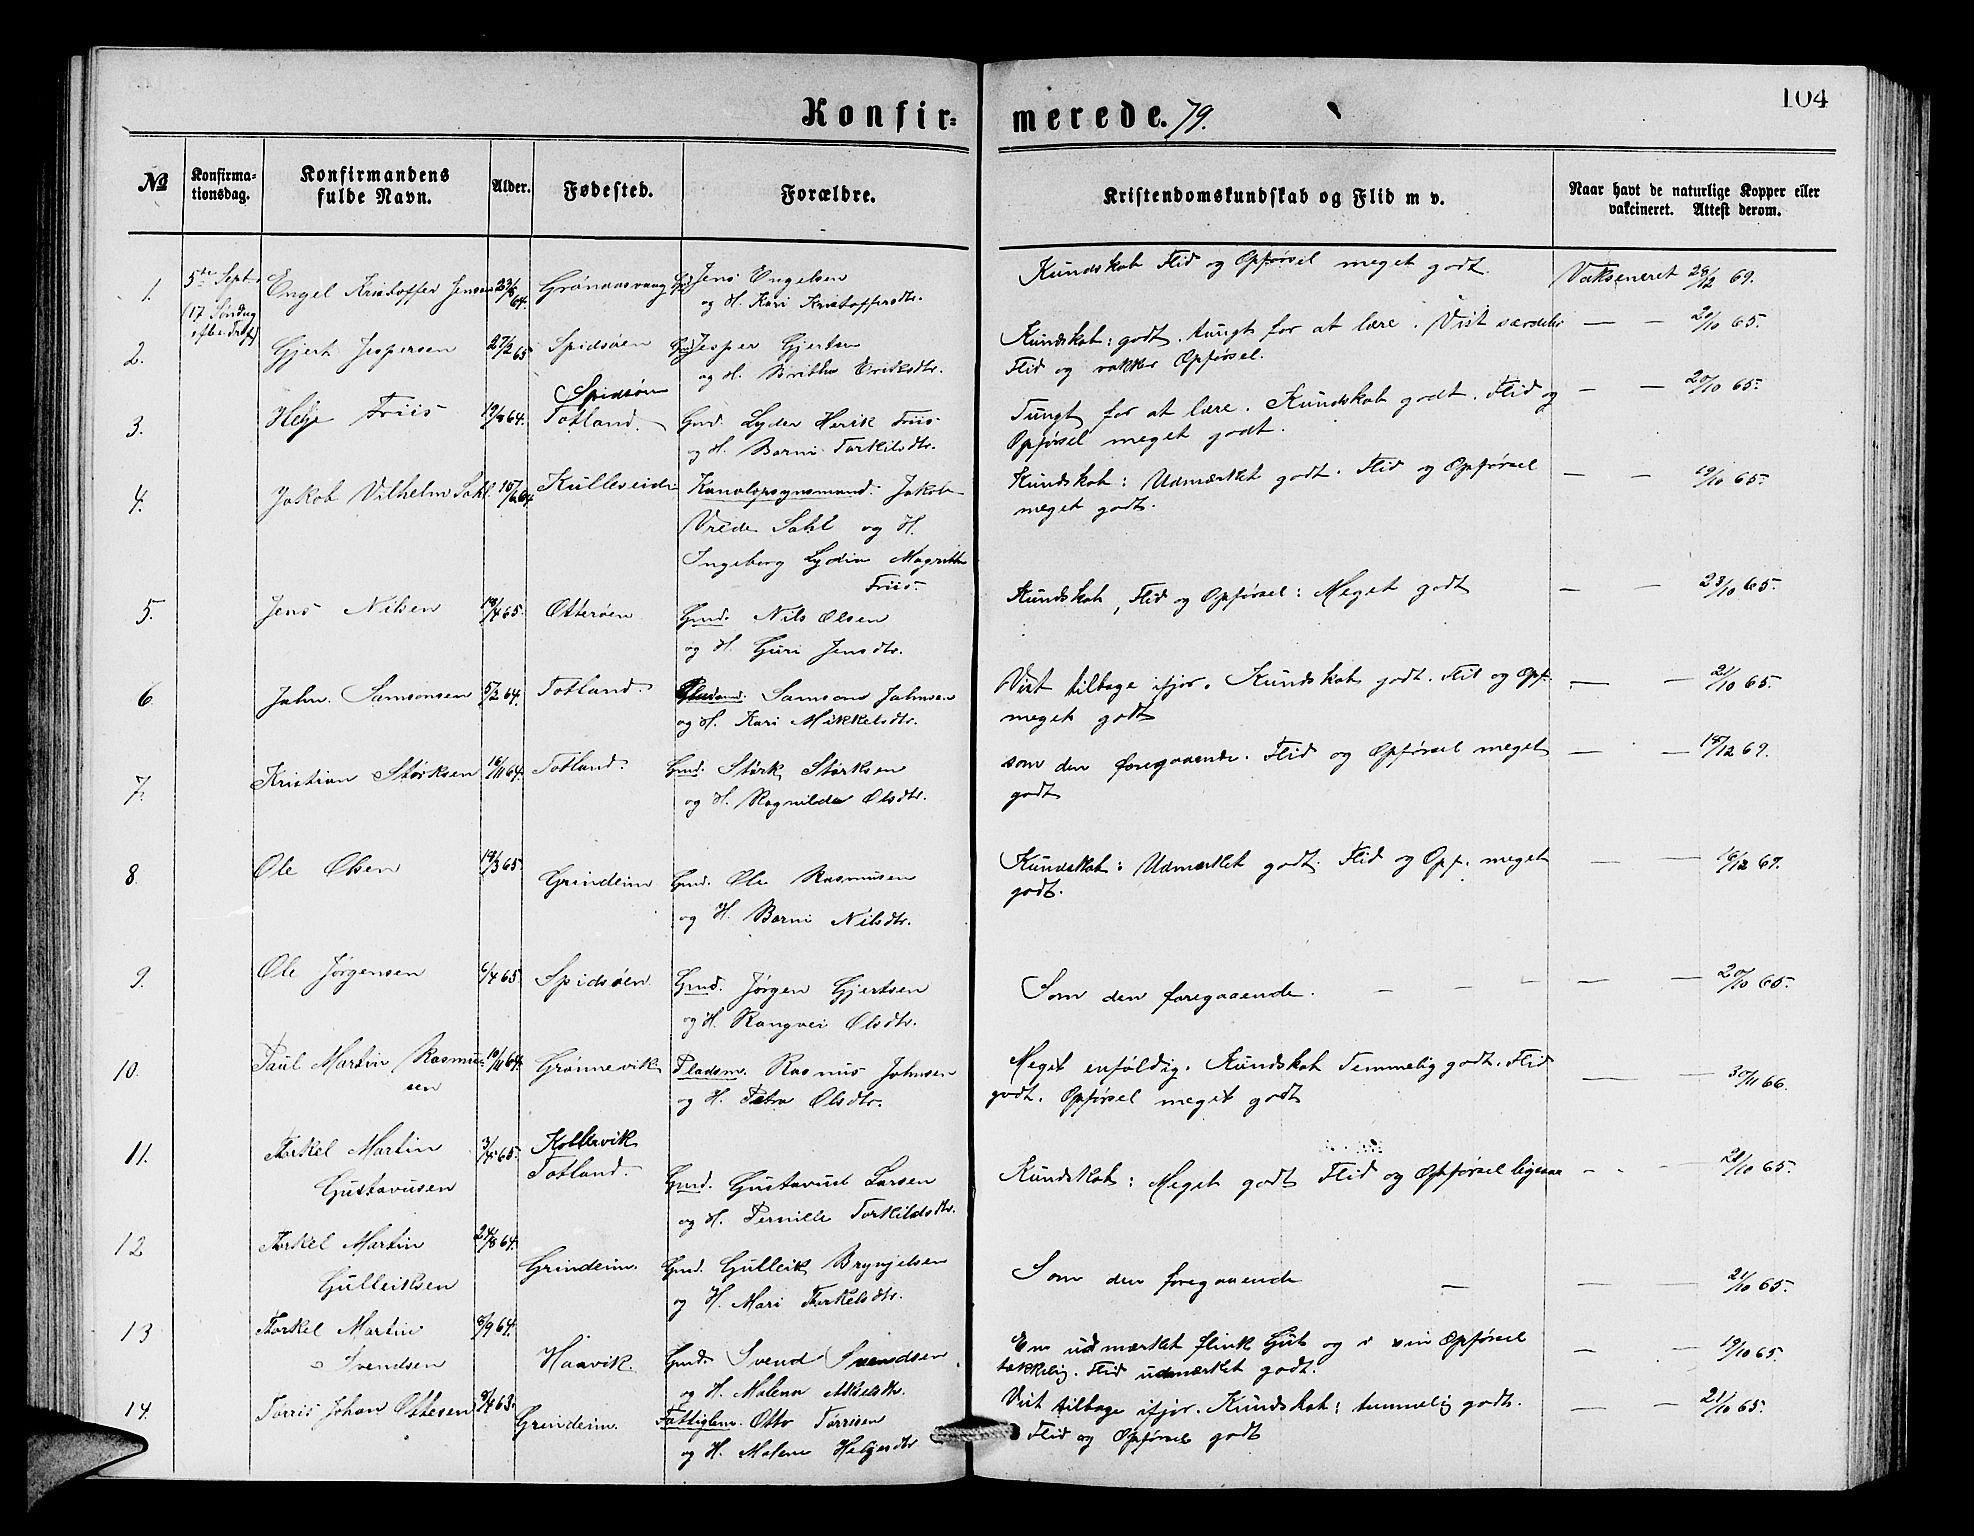 Konfir-
merede. 79.
104
No
Konfirma-
tionsdag.
Konfirmandens
fulde Navn.
Alder.
Fødested.
Forældre.
Kristendomskundskab og Flid m v.
Naar havt de naturlige Kopper eller
vakcineret. Attest derom.
1. 5te Sept. Engel Kristoffer Jensen 64. Grønaasvaag Jens Engelsen
(17 Søndag
efter Tref) og H. Kari Kristoffersdtr.
Kundskab Flid og Opførsel meget godt. Vakseneret 28/12 69.
2. Gjert Jespersen 27/2 65 Spidsøen Jesper Gjertsen
og H. Britha Eriksdtr.
Kundskab: godt. tungt for at lære. Vist særdeles — — 20/10 65.
Flid og vakker Opførsel.
3. Helje Friis 64. Spidsøen
Totland. Gmd. Lyder Herik Friis
og H. Barni Torkilsdtr.
Tungt for at lære. Kundskab godt. Flid og — — 20/10 65.
Opførsel meget godt.
4. Jakob Vilhelm Sahl. 64 Kulleseid Kanalopsynsmand. Jakob
Vrede Sahl og H.
Ingeborg Lydia Magrethe
Friis.
Kundskab: Udmærket godt. Flid og Opførsel — — 19/10 65.
meget godt.
5. Jens Nilsen 18/4 65. Otterøen Gmd. Nils Olsen
og H. Guri Jensdtr.
Kundskab, Flid og Opførsel: Meget godt — — 23/10 65.
6 John. Samsonsen 5/2 64. Totland. Samson Johnsen
og H. Kari Mikkelsdtr.
Vist tilbage ifjor. Kundskab godt. Flid og Opf. — — 21/10 65.
meget godt
7. Kristian Størksen 16/11 64. Totland. Gmd. Størk Størksen
og H. Ragnilda Olsdtr.
som den foregaaende. Flid og Opførsel meget — — 18/12 69.
godt
8. Ole Olsen 18/3 65. Grindeim Gmd. Ole Rasmusen
og H. Barni Nilsdtr.
Kundskab: Udmærket godt. Flid og Opf. meget — — 16/12 69.
godt.
9. Ole Jørgensen 6/4 65. Spidsøen Gmd. Jørgen Gjertsen
og H. Rangvei Olsdtr.
Som den foregaaende. — — — — — 20/10 65.
10. Paul Martin Rasmu- 10/11 64. Grønnevik Pladsm. Rasmus Johnsen
sen og H. Petra Olsdtr.
Meget enfoldig. Kundskab Temmelig godt. Flid — — 30/11 66.
godt. Opførsel meget godt
11. Torkel Martin 3/4 65. Kollervik
Gustavusen Totland. Gmd. Gustavus Larsen
og H. Pernille Torkildsdtr.
Kundskab: Meget godt Flid og Opførsel ligesaa — — 65.
12 Torkel Martin 24/8 64.
Gulleiksen Grindeim. Gmd. Gulleik Brynjelsen
og H. Mari Torkelsdtr.
Som den foregaaende — — — 21/10 65.
13 Torkel Martin 8/9 64.
Svendsen Haavik. Gmd. Svend Svendsen
og H. Malena Akselsdtr.
En udmærket flink Gut og i sin Opførsel — — 19/10 65.
tækkelig. Flid udmærket godt.
14. Torris Johan Ottesen 63. Grindeim. Fattiglem. Otto Torrisen
og H. Malene Helgesdtr
Vist tilbage ifjor. Kundskab: temmelig godt. — — 21/10 65.
Flid og Opførsel godt